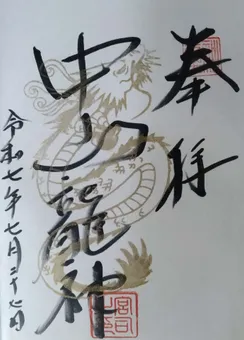 奉拝
中山龍神
令和七年七月二十七日